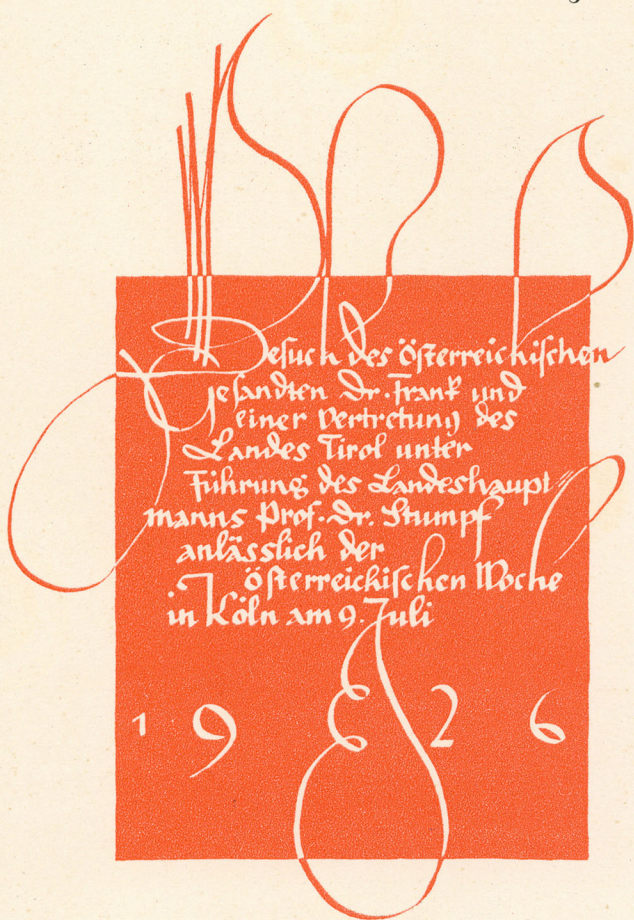 Besuch des Österreichischen
Gesandten Dr. Frank und
einer Vertretung des
Landes Tirol unter
Führung des Landeshaupt=
manns Prof. Dr. Stumpf
anlässlich der
I. Österreichischen Woche
in Köln am 9. Juli
1926